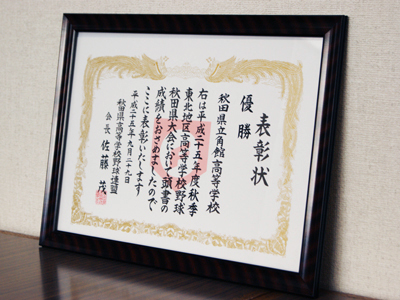 表彰状
優勝
秋田県立角館高等学校
右は平成二十五年度秋季
東北地区高等学校野球
秋田県大会において頭書の
成績をおさめましたので
ここに表彰いたします
平成二十五年九月二十九日
秋田県高等学校野球連盟
会長 佐藤 茂